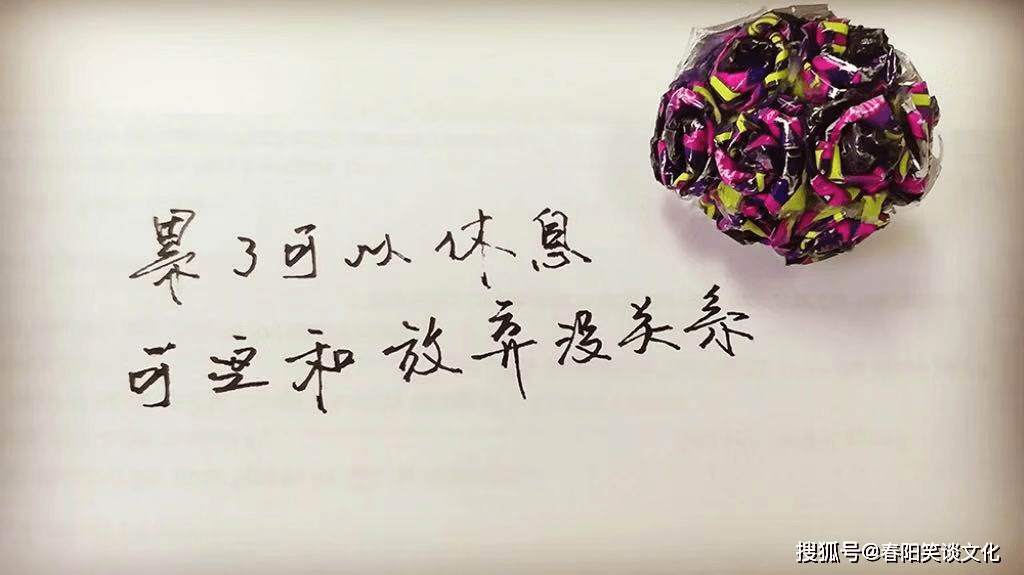 累了可以休息
可它和放弃没关系
搜狐号@春阳笑谈文化